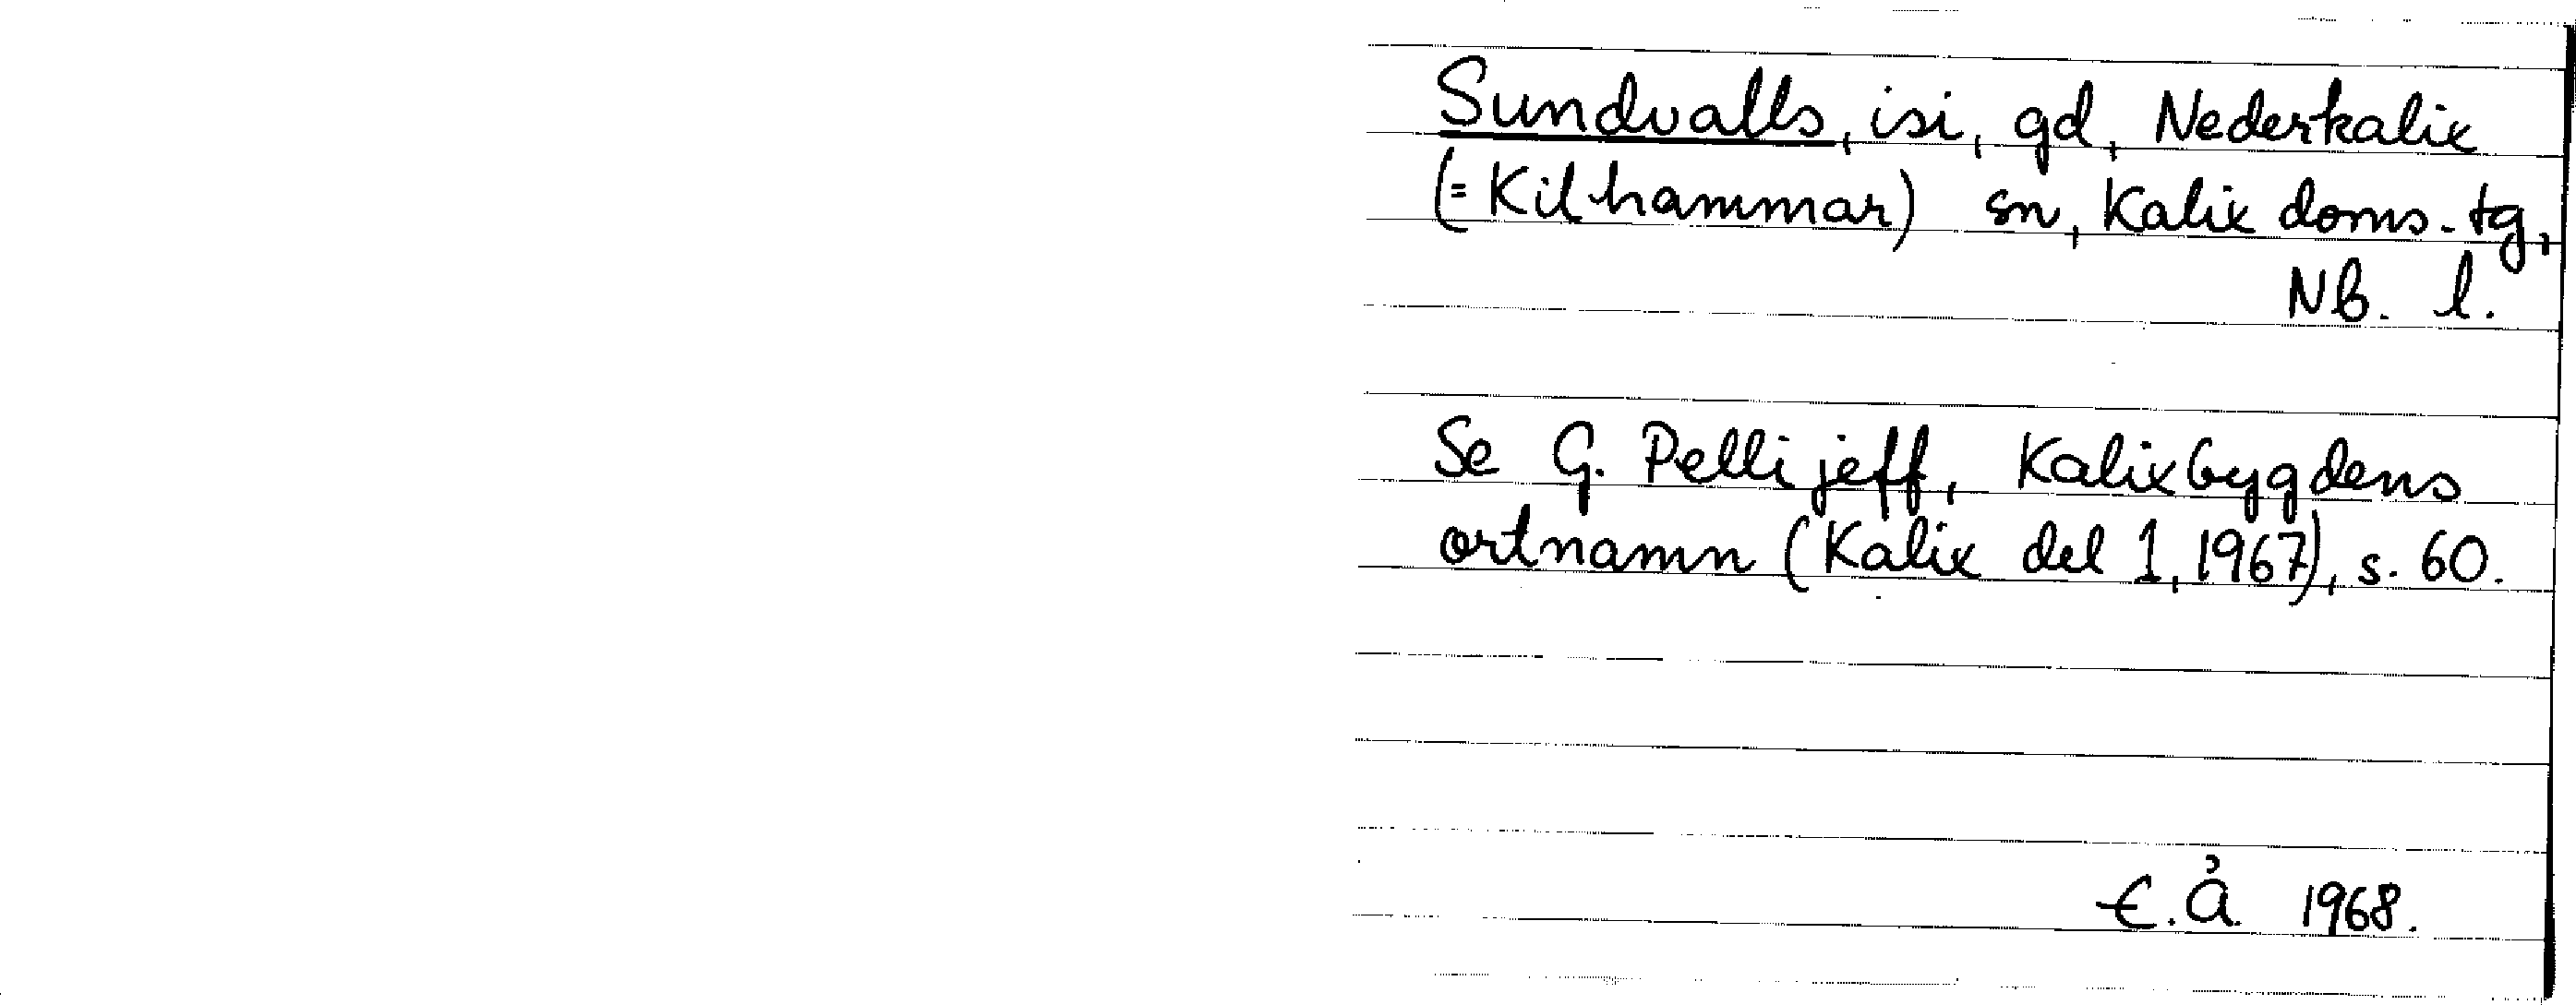 Sundvalls, isi, gd, Nederkalix
(= Kilhammar) sn, Kalix doms. tg,
Nb. l.
Se G. Pellijeff, Kalixbygdens
ortnamn (Kalix del 1, 1967), s. 60.
E.Å. 1968.